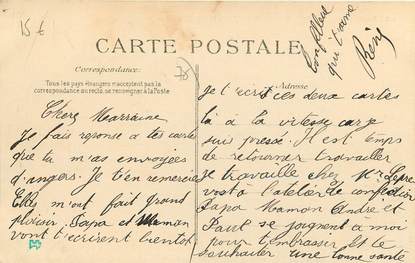 15€
CARTE POSTALE
Correspondance
Tous les pays étrangers n'acceptent pas la
correspondance au recto, se renseigner à la Poste
Adresse
Chère Marraine
Je fais reponse a tes cartes
que tu m'as envoyées
d'angers. Je t'en remercie
Elles m'ont fait grand
plaisir. Papa et Maman
vont t'écrirent bientot
Je t'écrit ces deux cartes
là à la vitesse car je
suis pressé. Il est temps
de retourner travailler
je travaille chez Mr
a l'atelier de confection
Papa Maman Andre et
Paul se joignent a moi
pour t'embrasser et te
souhaiter une bonne santé
Ton filleul
qui t'aime
René